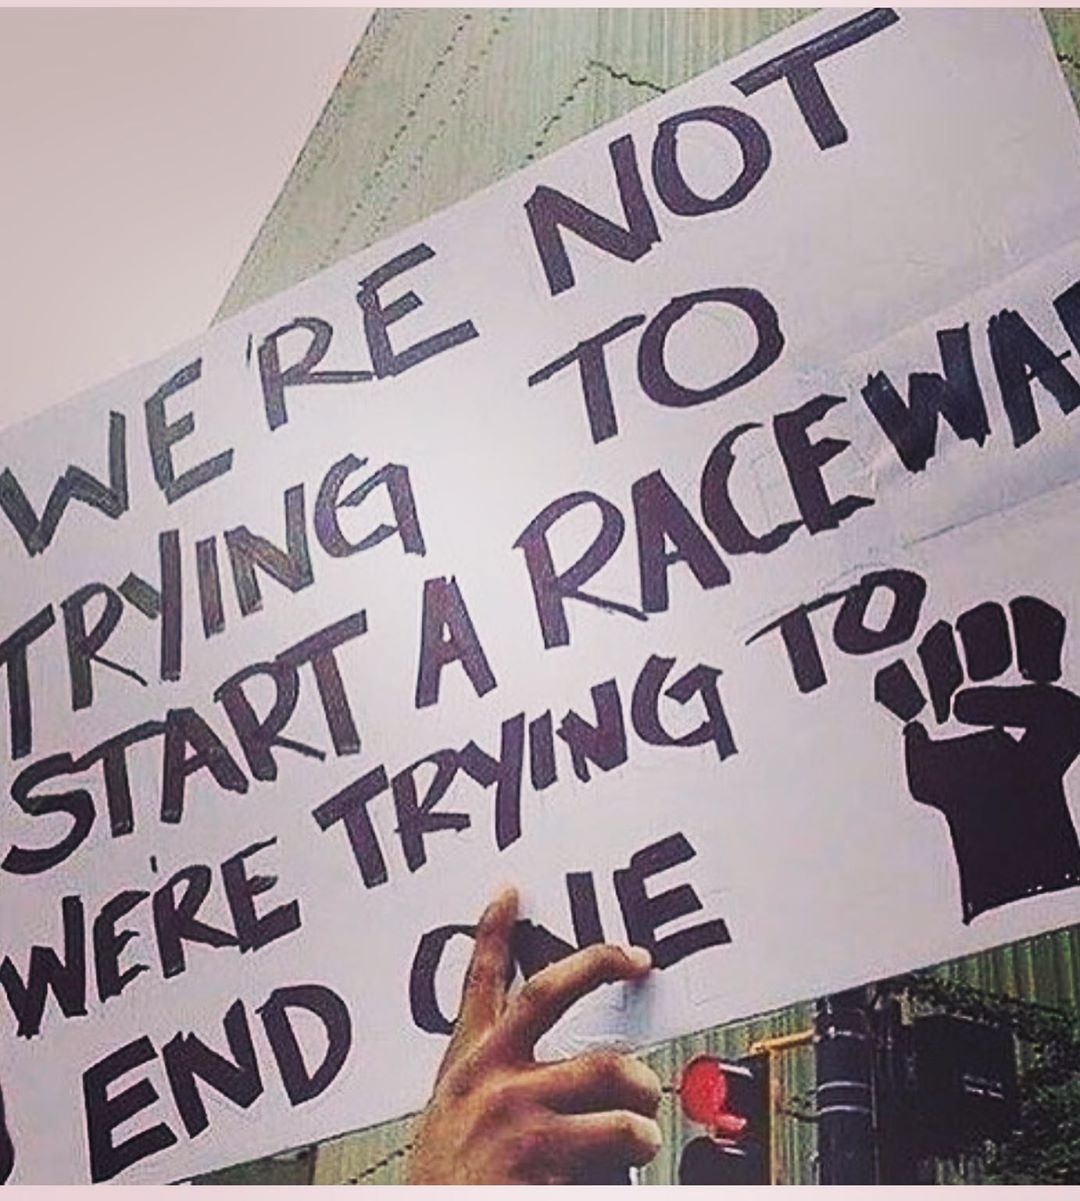 WE'RE NOT
TRYING TO
START A RACE WAR
WE'RE TRYING TO
END ONE